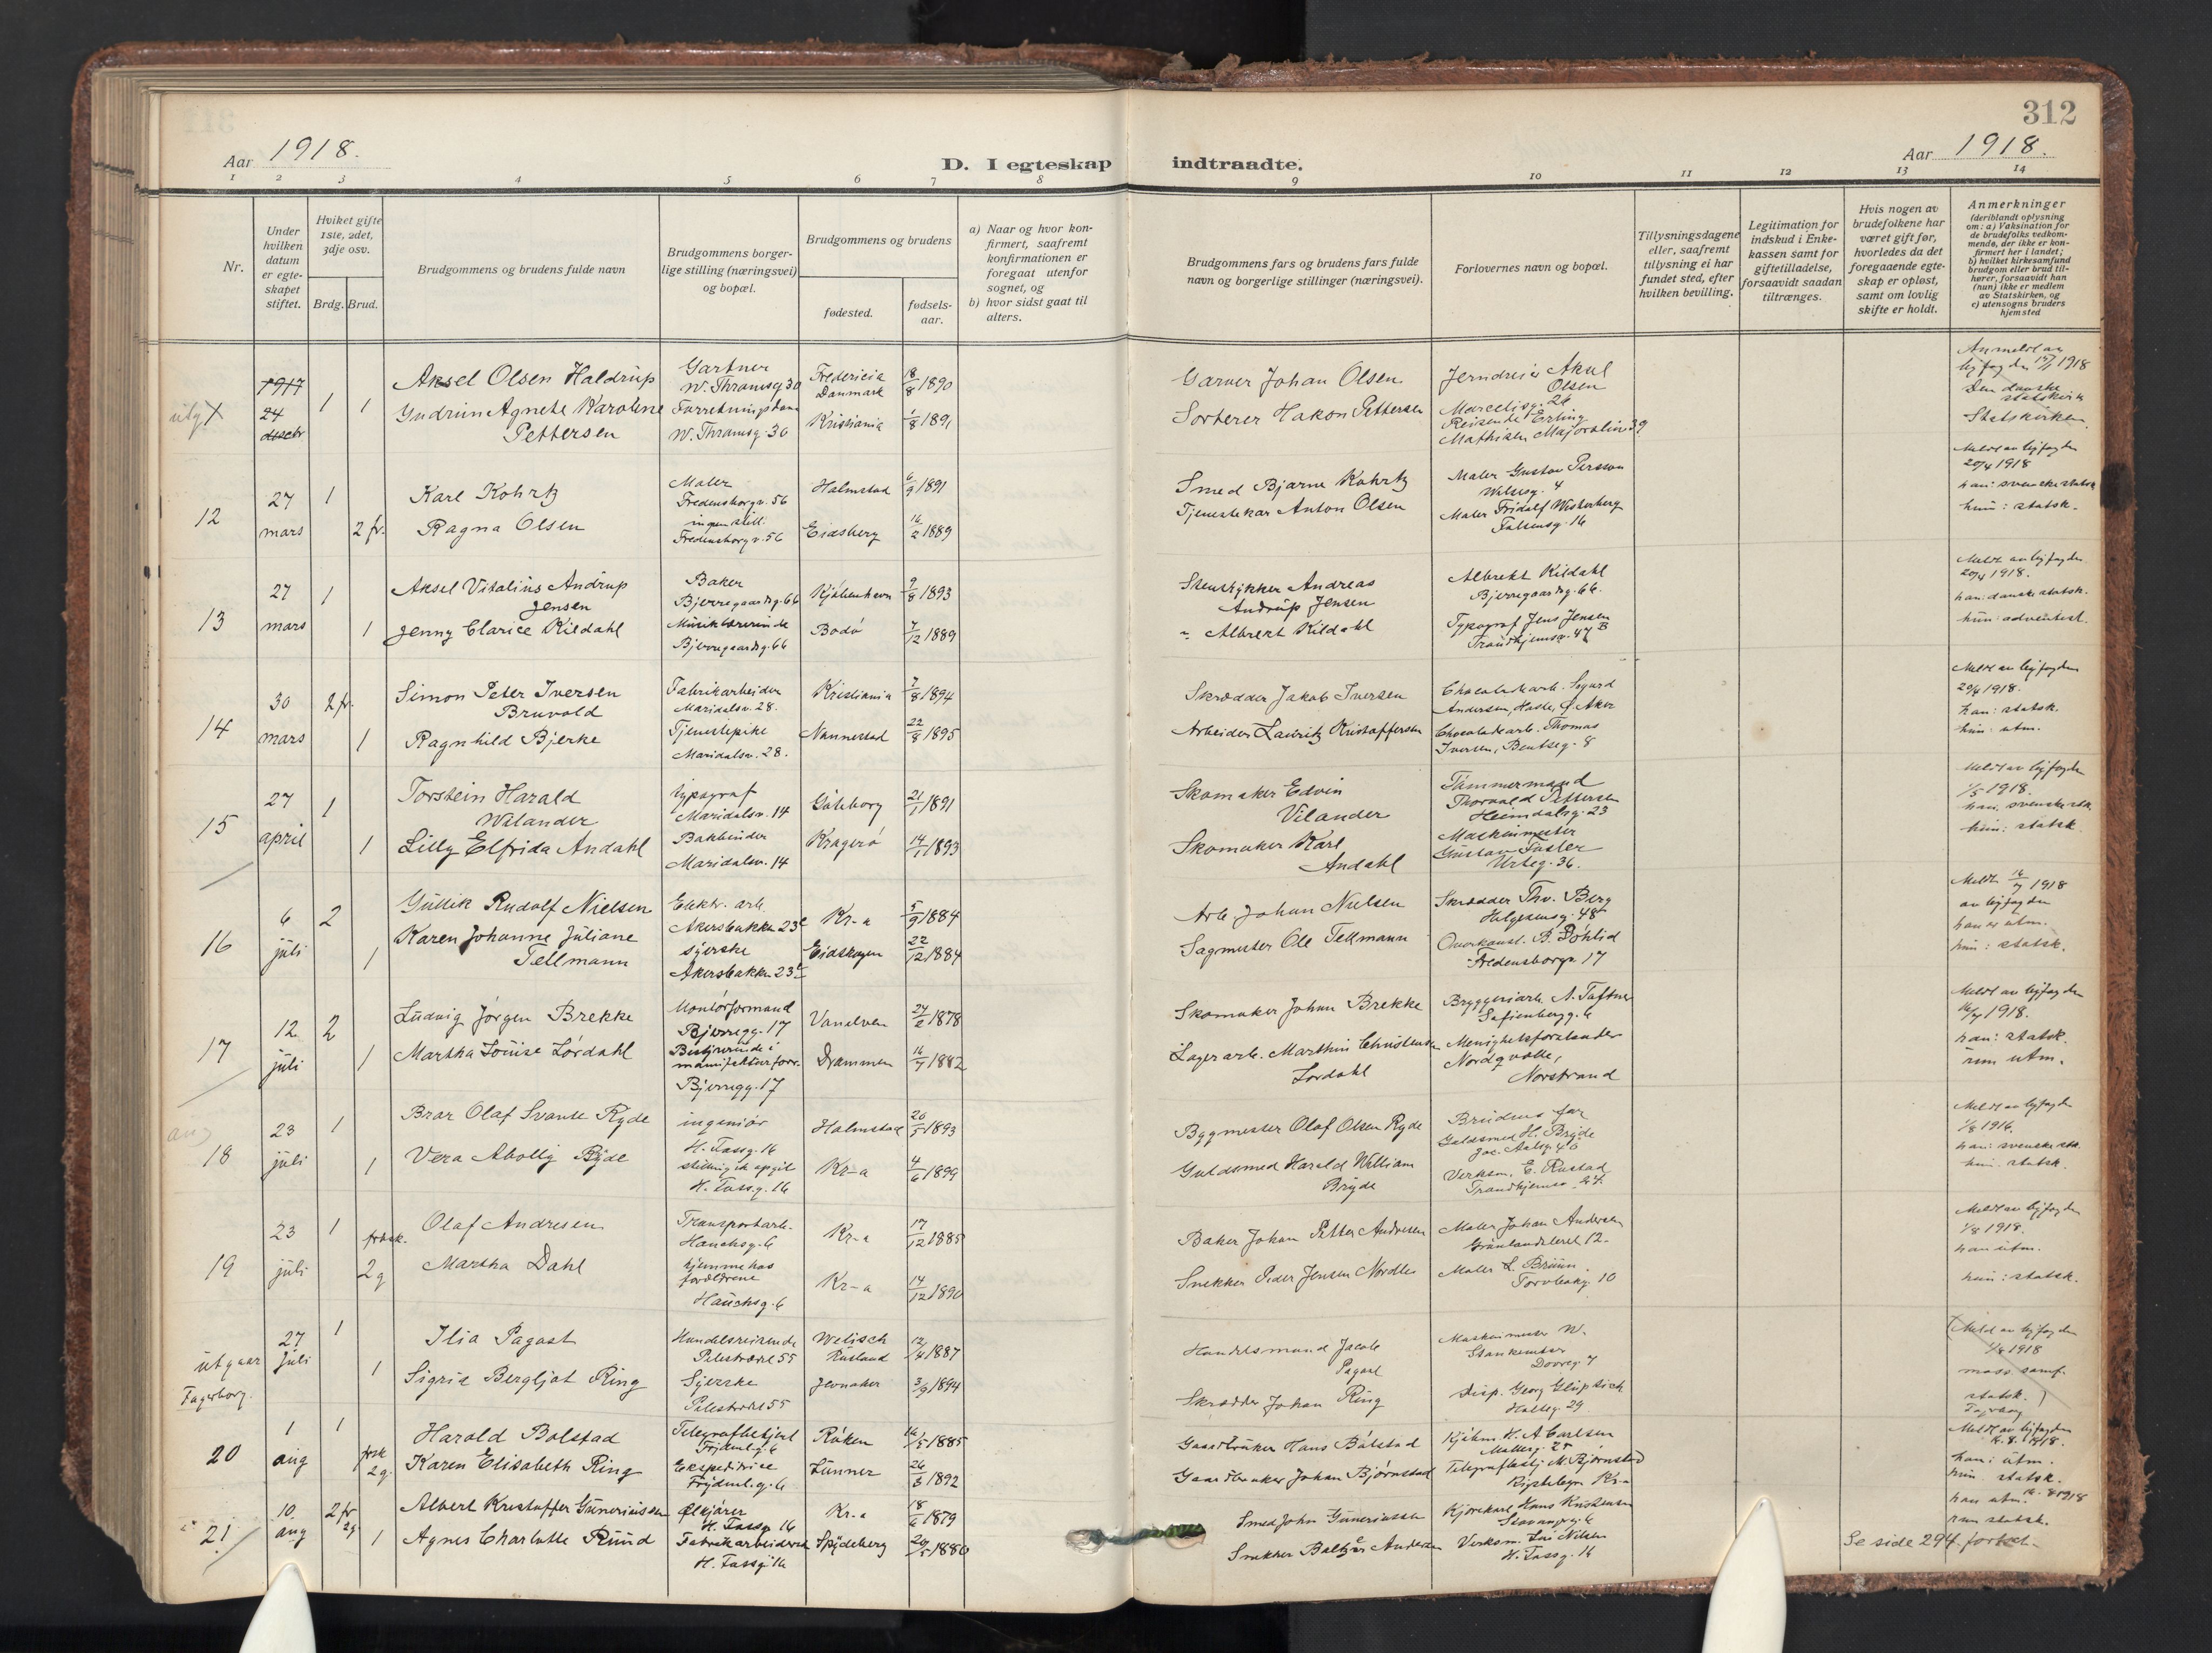 312
Aar 1918.
D. I egteskap indtraadte.
Aar 1918.
1 2 3 4 5 6 7 8 9 10 11 12 13 14
Nr.
Under hvilken datum er egteskapet stiftet.
Hvilket gifte 1ste, 2det, 3dje osv.
Brdg. Brud.
Brudgommens og brudens fulde navn
Brudgommens borgerlige stilling (næringsvei) og bopæl.
Brudgommens og brudens
fødested.
fødselsaar.
a) Naar og hvor konfirmert, saafremt konfirmationen er foregaat utenfor sognet, og
b) hvor sidst gaat til alters.
Brudgommens fars og brudens fars fulde navn og borgerlige stillinger (næringsvei).
Forlovernes navn og bopæl.
Tillysningsdagene eller, saafremt tillysning ei har fundet sted, efter hvilken bevilling.
Legitimation for indskud i Enkekassen samt for giftetilladelse, forsaavidt saadan tiltrænges.
Hvis nogen av brudefolkene har været gift før, hvorledes da det foregaaende egteskap er opløst, samt om lovlig skifte er holdt.
Anmerkninger
(deriblandt oplysning om: a) Vaksination for de brudefolks vedkommende, der ikke er konfirmert her i landet; b) hvilket kirkesamfund brudgom eller brud tilhører, forsaavidt han (hun) ikke er medlem av Statskirken, og c) utensogns bruders hjemsted
utg X
1917 24 1 1
Aksel Olsen Haldrup
Gartner
W. Thranesg. 30
Fredericia Danmark
18/8 1890
Garver Johan Olsen
Jerndreier Aksel Olsen
Anmeldt av byfogden 1918
Den danske statskirke
Gudrun Agnete Karoline Pettersen
W. Thranesg. 30
Kristiania
1/8 1891
Sorterer Hakon Pettersen
Reisende Erling Mathisen Majorstuv. 39
Statskirken
12
27 mars 1 2 fr.
Karl Kohrtz
Maler
Fredensborgv. 56
Halmstad
6/9 1891
Smed Bjarne Kohrtz
Maler Gustav Persson
4
Meldt av byfogden
20/4 1918
han: svenske statsk.
Ragna Olsen
ingen still.
Fredensborgv. 56
Eidsberg
16/2 1889
Tjenestekar Anton Olsen
Maler Fridolf Westerberg
Falsensg. 16
hun: statsk.
13
27 mars 1 1
Aksel Vitalius Andrup Jensen
Baker
Bjerregaardsg. 66
Kjøbenhavn
9/8 1893
Stentrykker Andreas Andrup Jensen
Albrekt Kildahl
Bjerregaardsg. 66.
Meldt av byfogden
20/4 1918.
han: danske statsk.
Jenny Clarice Kildahl
Musiklærerinde
Bjerregaardsg. 66
Bodø
7/12 1889
Albrekt Kildahl
Typograf Jens Jensen
Trondhjemsv. 47 B
hun: adventist.
14
30 mars 2 fr. 1
Simon Peter Iversen Bruvold
Fabrikarbeider
Maridalsv. 28.
Kristiania
7/8 1894
Skrædder Jakob Iversen
Chocoladearb. Sigurd Andersen, Hasle, Ø. Aker
Meldt av byfogden
20/4 1918.
han: statsk.
Ragnhild Bjerke
Tjenestepike
Maridalsv. 28.
Nannestad
22/8 1895
Arbeider Lauritz Kristoffersen
Chocoladearb. Thomas Iversen, Bentseg. 8
hun: utm.
15
27 april 1 1
Torstein Harald Wilander
typograf
Maridalsv. 14
Göteborg
21/1 1891
Skomaker Edvin Vilander
Tømmermand
Thorvald Pettersen
Heimdalsg. 23
Meldt av byfogden
1/5 1918.
han: svenske statsk
Lilly Elfrida Andahl
Bokbinder
Maridalsv. 14
Kragerø
14/1 1893
Skomaker Karl Andahl
Maskinmester
Urteg. 36.
hun: statsk.
16
6 juli 2 1
Gullik Rudolf Nielsen
Elektr. arb.
Akersbakken 23
Kr-a
5/9 1884
Arb Johan Nielsen
Skrædder Thv. Berg
Helgesensg. 48
Meldt 16/7 1918
av byfogden
han er utm.
Karen Johanne Juliane Tellmann
syerske
Akersbakken 23
Eidskogen
22/12 1884
Sagmester Ole Tellmann
Fredensborgv. 17
hun: statsk.
17
12 juli 2 1
Ludvig Jørgen Brekke
Montørformand
Bjerregg. 17
Vanelven
27/2 1878
Skomaker Johan Brekke
Bryggeriarb. A. Taftner
Sofienbergg. 6
Meldt av byfogden
16/7 1918.
han: statsk.
Martha Louise Lørdahl
Bestyrerinde i manufakturforr.
Bjerregg. 17
Drammen
16/7 1882
Lagerarb. Marthin Christensen Lørdahl
Menighetsforstander
Norstrand
hun utm.
18
23 juli 1 1
Brar Olaf Svante Ryde
ingeniør
H. Tassg. 16
Halmstad
20/5 1893
Bygmester Olaf Olsen Ryde
Brudens far
Guldsmed H. Bryde
Jac. Aalsg. 46
Meldt av byfogden
1/8 1916.
han: svenske statsk.
Vera Abolly Byde
stilling ik opgit
H. Tassg. 16
Kr-a
4/6 1899
Guldsmed Harald William Bryde
Verksm. E. Rustad
hun: statsk.
19
23 juli 1 frask. 2g
Olaf Andresen
Transportarb.
Hauchsg. 6
Kr-a
17/12 1885
Baker Johan Petter Andresen
Maler Johan Andersen
Grønlandsleret 12.
Meldt av byfogden
1/8 1918.
han utm.
Martha Dahl
hjemme hos forældrene
Hauchsg. 6
Kr-a
14/12 1890
Snekker Peder Jensen Nordli
Maler L. Bruun.
Torvbakg. 10
hun: statsk.
utgaar Fagerborg.
27 juli 1 1
Ilia Pagast
Handelsreisende
Pilestrædet 55
Welisch Rusland
12/4 1887
Handelsmand Jacob
Maskinmester W.
Dovreg. 7
Meldt av byfogden
1918
mos. samf.
Sigrid Bergljot Ring
Syerske
Pilestrædet 55
Jevnaker
3/9 1894
Skrædder Johan Ring
Disp. Georg
29
statsk.
20
1 aug 1 frsk 2g.
Harald Bolstad
Telegrafbetjent
Røken
16/5 1885
Gaardbruker Hans Bolstad
Kjøbm. H. A. Carlsen
Møllerg. 25
Meldt av byfogden
8. 1918.
han: utm.
Karen Elisabeth Ring
Ekspeditrice
Frydenl.g. 6
Lunner
26/3 1892
Gaardbruker Johan Bjørnstad
Telegrafbetj. M. Bjørnstad
Kr-a
hun statsk.
21
10. aug 2 fr 2g. 1
Albert Kristoffer Gunerius
Ølkjører
H. Tassg 16
Kr-a
18/6 1879
Smed John Gunerius
Kjørekarl Hans Kristensen
Stavangerg. 6
han utm. 1918
Agnes Charlotte Ruud
Fabrikarbeiderske
H. Tassg. 16
Spydeberg
20/5 1880
Snekker Baltzer Andersen
Verksm. Nilsen
H. Tassg. 16
hun statsk.
Se side 294. fortset.